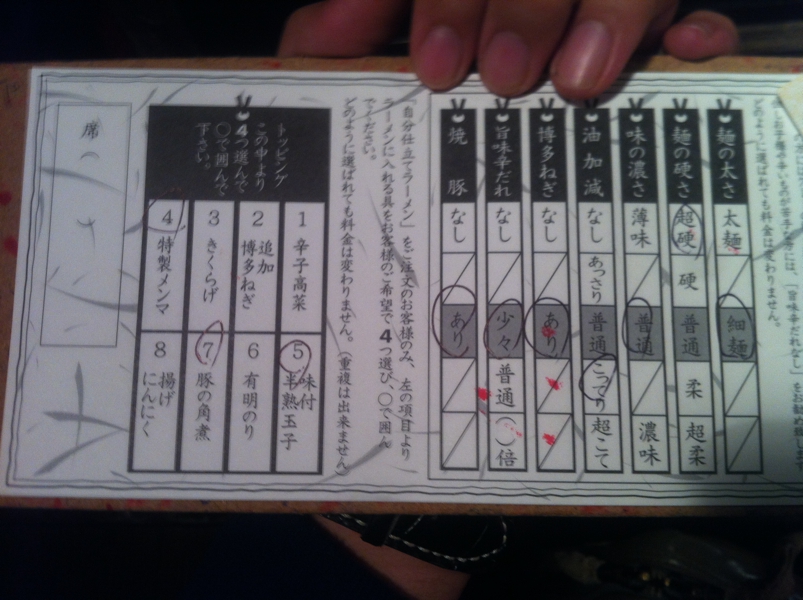 どのように選ばれても料金は変わりません。
麺の太さ 太麺 細麺
麺の硬さ 超硬 硬 普通 柔 超柔
味の濃さ 薄味 普通 濃味
油加減 なし あっさり 普通 こってり 超こて
博多ねぎ なし あり
旨味辛だれ なし 少々 普通 ( )倍
焼豚 なし あり
「自分仕立てラーメン」をご注文のお客様のみ、左の項目より
ラーメンに入れる具をお客様のご希望で4つ選び、〇で囲ん
でください。
どのように選ばれても料金は変わりません。(重複は出来ません)
トッピング
この中より
4つ選んで
〇で囲んで
下さい。
1 辛子高菜
5 味付
半熟玉子
2 追加
博多ねぎ
6 有明のり
3 きくらげ
7 豚の角煮
4 特製メンマ
8 揚げ
にんにく
席( )